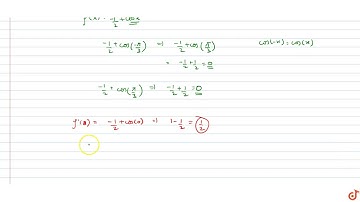 f'(x) = -1/2 + cosx
-1/2 + cos(-π/3) ⇒ -1/2 + cos(π/3)
cos(-x) = cos(x)
= -1/2 + 1/2 = 0
-1/2 + cos(π/3) ⇒ -1/2 + 1/2 = 0
f'(0) = -1/2 + cos(0) ⇒ 1 - 1/2 = 1/2